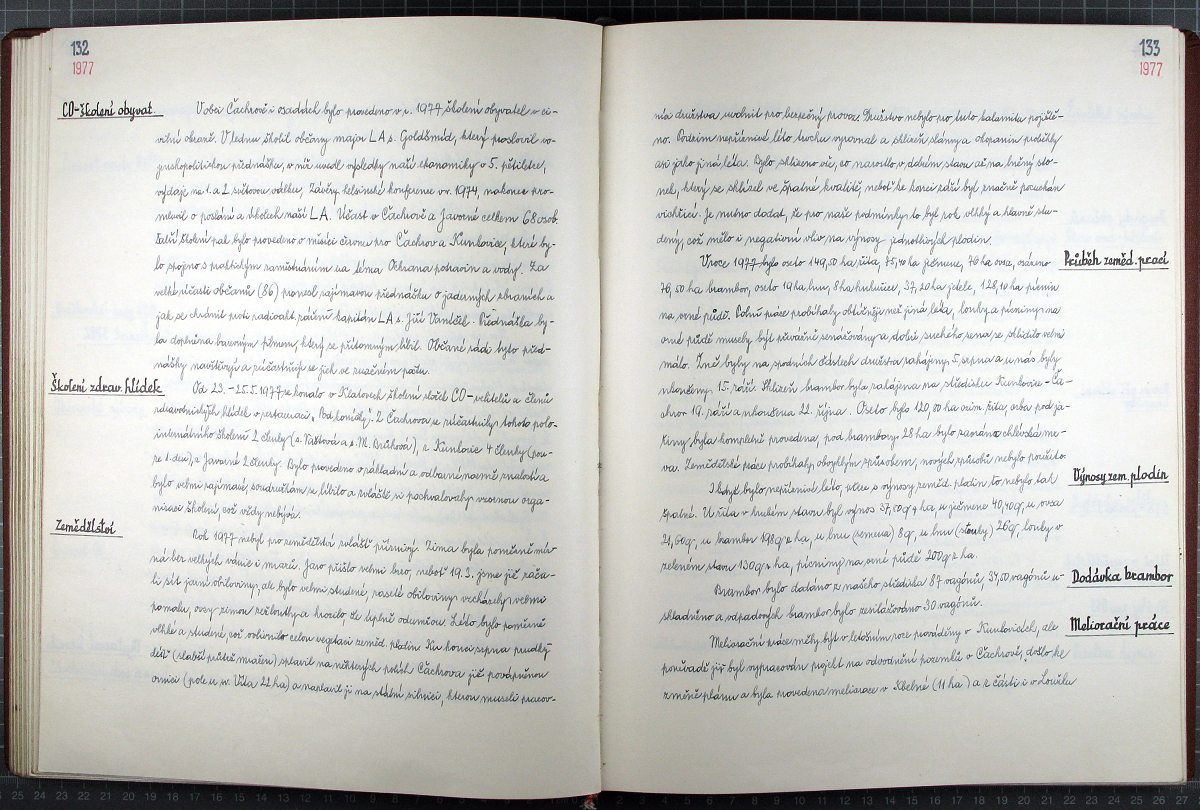 132
1977
CO-školení obyvat.
V obci Čachrově i osadách bylo provedeno v r. 1977 školení obyvatel v ci-
vilní obraně. V lednu školil občany major LA s. Goldšmíd, který proslovil vo-
jenskopolitickou přednášku, v níž uvedl výsledky naší ekonomiky v 5. pětiletce,
výdaje na 1. a 2. světovou válku, Závěry helsinské konference v r. 1974, nakonec pro-
mluvil o poslání a úkolech naší LA. Účast v Čachrově a Javorné celkem 68 osob.
Další školení pak bylo provedeno v měsíci červnu pro Čachrov a Kunkovice, které by-
lo spojeno s praktickým zaměstnáním na téma Ochrana potravin a vody. Za
velké účasti občanů (86) pronesl zajímavou přednášku o jaderných zbraních a
jak se chránit proti radioakt. záření kapitán LA s. Jiří Vaněček. Přednáška by-
la doplněna barevným filmem, který se přítomným líbil. Občané rádi tyto před-
nášky navštěvují a zúčastňují se jich ve značném počtu.
Školení zdrav. hlídek
Od 23.-25.5.1977 se konalo v Klatovech školení složek CO-velitelů a členů
zdravotnických hlídek v restauraci „Pod koníčky". Z Čachrova se zúčastnily tohoto polo-
internátního školení 2 členky (s. a s. M. Brůhová), z Kunkovic 4 členky (pou-
ze 1. den), z Javorné 2 členky. Bylo provedeno v základně a odborně, naměř znalostí a
bylo velmi zajímavé, soudružkám se líbilo a zvláště si pochvalovaly vzornou orga-
nizaci školení, což vždy nebývá.
Zemědělství
Rok 1977 nebyl pro zemědělství zvláště příznivý. Zima byla poměrně mír-
ná bez velkých vánic i mrazů. Jaro přišlo velmi brzo, neboť 19.3. jsme již začí-
li sít jarní obiloviny, ale bylo velmi studené, zaseté obiloviny vzcházely velmi
pomalu, ovsy zimou zežloutly a hrozilo, že úplně odumřou. Léto bylo poměrně
vlhké a studené, což ovlivnilo celou vegetaci zeměd. plodin. Ke konci srpna prudký
déšť (slabší průtrž mračen) splavil na některých polích Čachrova již povápněnou
ornici (pole u sv. Víta 22 ha) a naplavil ji na státní silnici, kterou museli pracov-
133
1977
níci družstva uvolnit pro bezpečný provoz. Družstvo nebylo pro tuto kalamitu pojiště-
no. Podzim nepříznivé léto trochu vyrovnal a sklizeň slámy a okopanin proběhly
asi jako jiná léta. Bylo sklizeno vše, co narostlo, v dobrém stavu až na lněný sto-
nek, který se sklízel ve špatné kvalitě, neboť ke konci září byl značně pocuchán
vichřicí. Je nutno dodat, že pro naše podmínky to byl rok vlhký a hlavně stu-
dený, což mělo i negativní vliv na výnosy jednotlivých plodin.
Průběh zeměd. prací
V roce 1977 bylo oseto 149,50 ha žita, 75,40 ha ječmene, 76 ha ovsa, osázeno
76,50 ha brambor, oseto 19 ha lnu, 8 ha kukuřice, 37,20 ha jetele, 128,10 ha pícnin
na orné půdě. Polní práce probíhaly obtížněji než jiná léta, louky a pícniny na
orné půdě musely být převážně senážovány a dobré suchého sena se sklidilo velmi
málo. Žně byly na spodních částech družstva zahájeny 5. srpna a u nás byly
ukončeny 15. září. Sklizeň brambor byla zahájena na středisku Kunkovice-Ča-
chrov 19. září a ukončena 22. října. Oseto bylo 120,00 ha ozim. žita, orba pod ja-
řiny byla kompletně provedena, pod brambory 28 ha bylo zaoráno chlévské mr-
va. Zemědělské práce probíhaly obvyklým způsobem, nových způsobů nebylo použito.
Výnosy zem. plodin
I když bylo nepříznivé léto, přece s výnosy zeměd. plodin to nebylo tak
špatné. U žita v hrubém stavu byl výnos 37,00 q z ha, u ječmene 40,40 q, u ovsa
21,60 q, u brambor 198 q z ha, u lnu (semena) 8 q, u lnu (stonky) 26 q, louky v
zeleném stavu 130 q z ha, pícniny na orné půdě 200 q z ha.
Dodávka brambor
Brambor bylo dodáno z našeho střediska 87 vagónů, 34,50 vagónů u-
skladněno a odpadových brambor bylo zesilážováno 30 vagónů.
Meliorační práce
Meliorační práce měly být v letošním roce prováděny v Kunkovicích, ale
poněvadž již byl vypracován projekt na odvodnění pozemků v Čachrově, došlo ke
změně plánu a byla provedena meliorace v Kbelné (11 ha) a z části i v Loučku